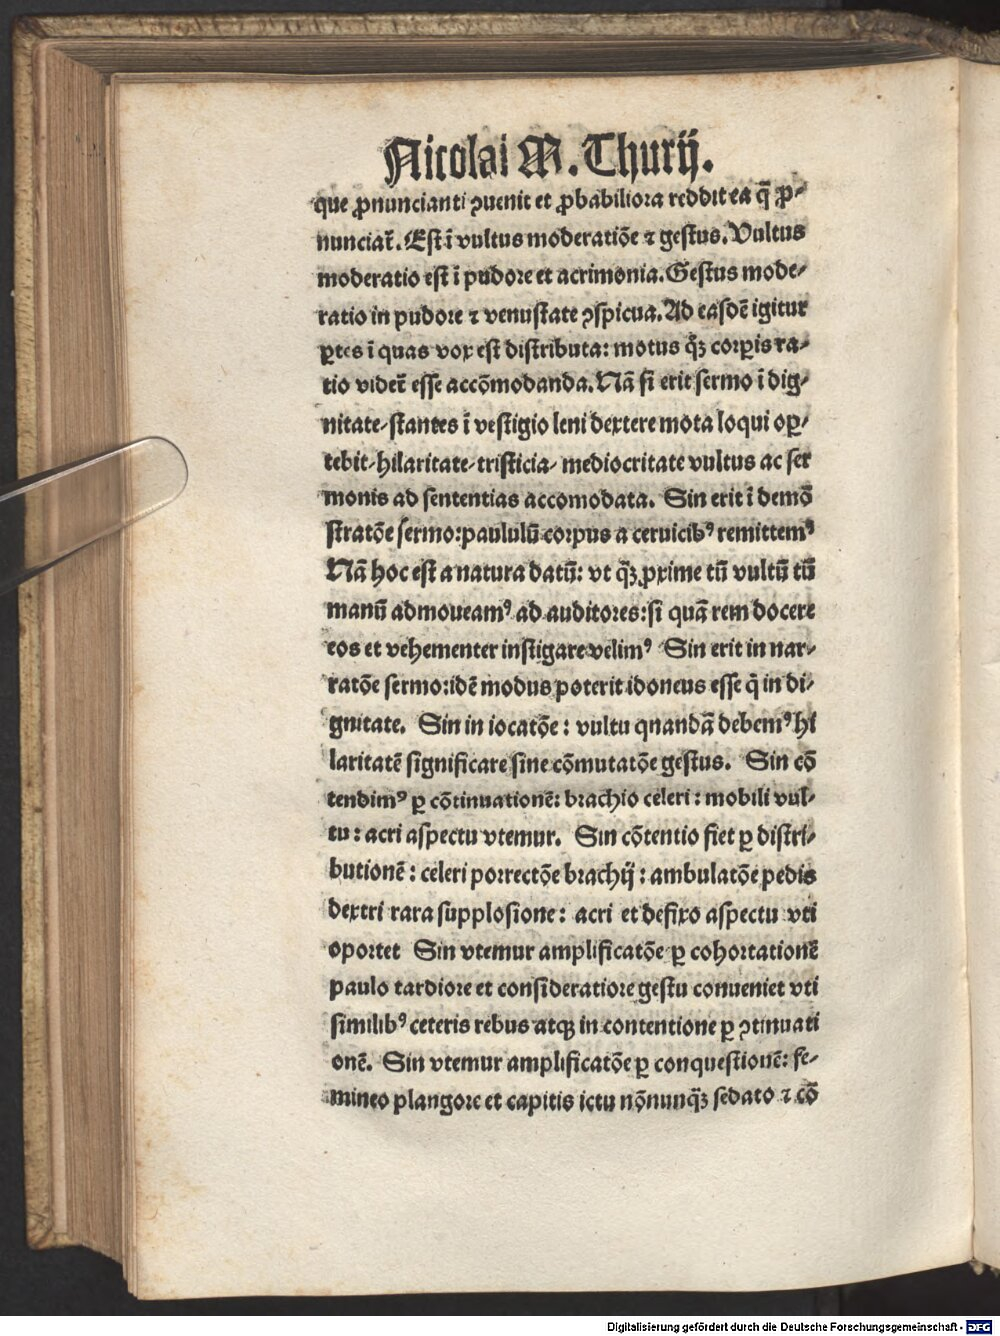 Nicolai M. Thurij.
que ꝓnuncianti ꝯuenit et ꝓbabiliora reddit ea q̄ ꝓ⸗
nunciat̄. Est ī vultus moderatiōe ⁊ gestus. Vultus
moderatio est ī pudore et acrimonia. Gestus mode⸗
ratio in pudore ⁊ venustate ꝯspicua. Ad easdē igitur
ꝑtes ī quas vox est distributa: motus qͦꝫ corꝑis ra⸗
tio videt̄ esse accōmodanda. Nā si erit sermo ī dig⸗
nitate/stantes ī vestigio leni dextere mota loqui opꝑ⸗
tebit/hilaritate/tristicia/ mediocritate vultus ac ser
monis ad sententias accomodata. Sin erit ī demō
stratōe sermo:paululū corpus a ceruicibꝰ remittemꝰ
Nā hoc est a natura datū: vt qͣꝫ ꝓxime tū vultū tū
manū admoueamꝰ ad auditores:si quā rem docere
eos et vehementer instigare velimꝰ Sin erit in nar⸗
ratōe sermo:idē modus poterit idoneus esse q̄ in di⸗
gnitate. Sin in iocatōe: vultu qnandā debemꝰ hi
laritatē significare sine cōmutatōe gestus. Sin cō
tendimꝰ ꝑ cōtinuationē: brachio celeri: mobili vul⸗
tu: acri aspectu vtemur. Sin cōtentio fiet ꝑ distri⸗
butionē: celeri porrectōe brachij: ambulatōe pedis
dextri rara supplosione: acri et defixo aspectu vti
oportet Sin vtemur amplificatōe ꝑ cohortationē
paulo tardiore et consideratiore gestu conueniet vti
similibꝰ ceteris rebus atqꝫ in contentione ꝑ ꝯtinuati
onē. Sin vtemur amplificatōe ꝑ conquestionē: fe⸗
mineo plangore et capitis ictu nōnunqͣꝫ sedato ⁊ cō
Digitalisierung gefördert durch die Deutsche Forschungsgemeinschaft - DFG